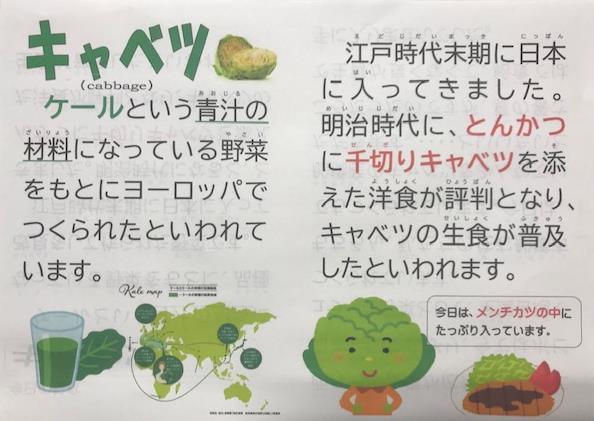 キャベツ
(cabbage)
ケールという青汁の
材料になっている野菜
をもとにヨーロッパで
つくられたといわれて
います。
Kale map
江戸時代末期に日本
に入ってきました。
明治時代に、とんかつ
に千切りキャベツを添
えた洋食が評判となり、
キャベツの生食が普及
したといわれます。
今日は、メンチカツの中に
たっぷり入っています。